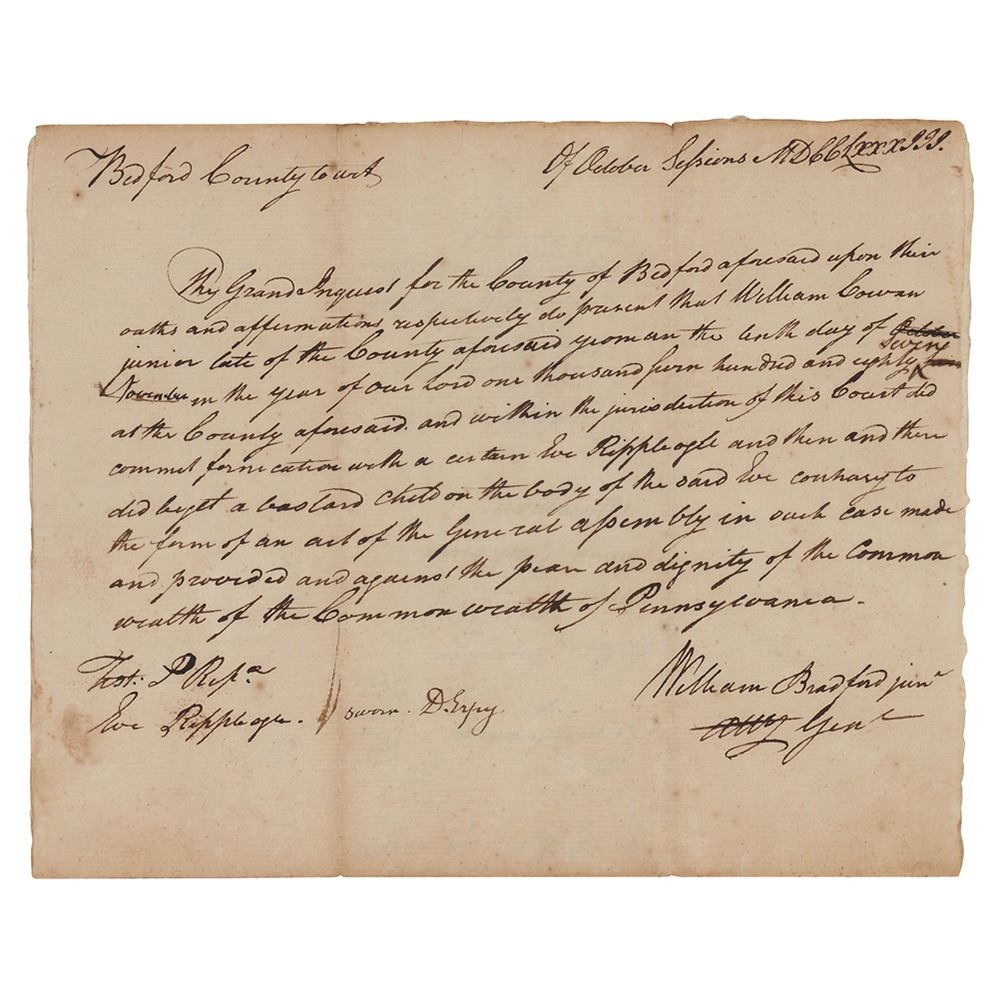 Bedford County Court
Of October Sessions MDCCLXXXIII.
The Grand Inquest for the County of Bedford aforesaid upon their
oaths and affirmations respectively do present that William Cowan
junior late of the County aforesaid yeoman the tenth day of October
November in the year of our lord one thousand seven hundred and eighty
at the County aforesaid. and within the jurisdiction of this Court did
commit fornication with a certain Eve Rippleogle and then and there
did beget a bastard child on the body of the said Eve contrary to
the form of an act of the General assembly in such case made
and provided and against the peace and dignity of the Common
wealth of the Common wealth of Pennsylvania.
Test: P Rep.a
Eve Rippleogle. sworn. D. Espy
William Bradford junr
Atty Genl